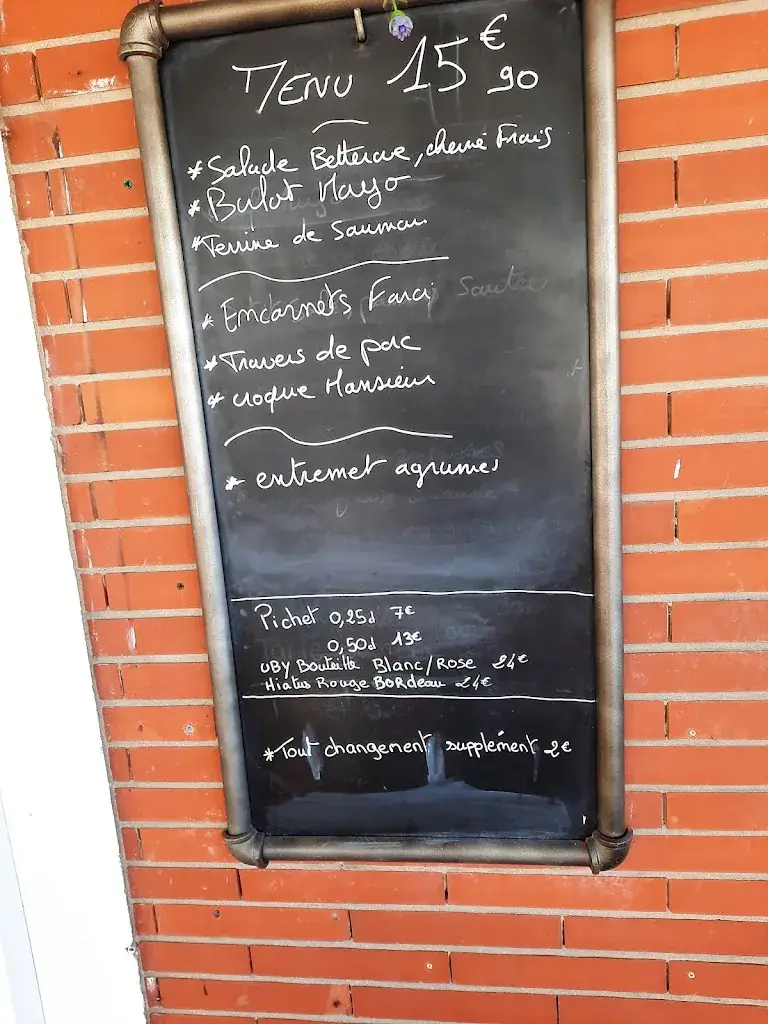 MENU 15€90
* Salade Betterave, chevré Frais
* Bulot Mayo
* Terrine de Saumon
* Encornets Farci
* Travers de porc
* croque Monsieur
* entremet agrumes
Pichet 0,25d 7€
0,50d 13€
UBY Bouteille Blanc/Rose 24€
Hiatus Rouge BORdeau 24€
*Tout changement supplément 2€